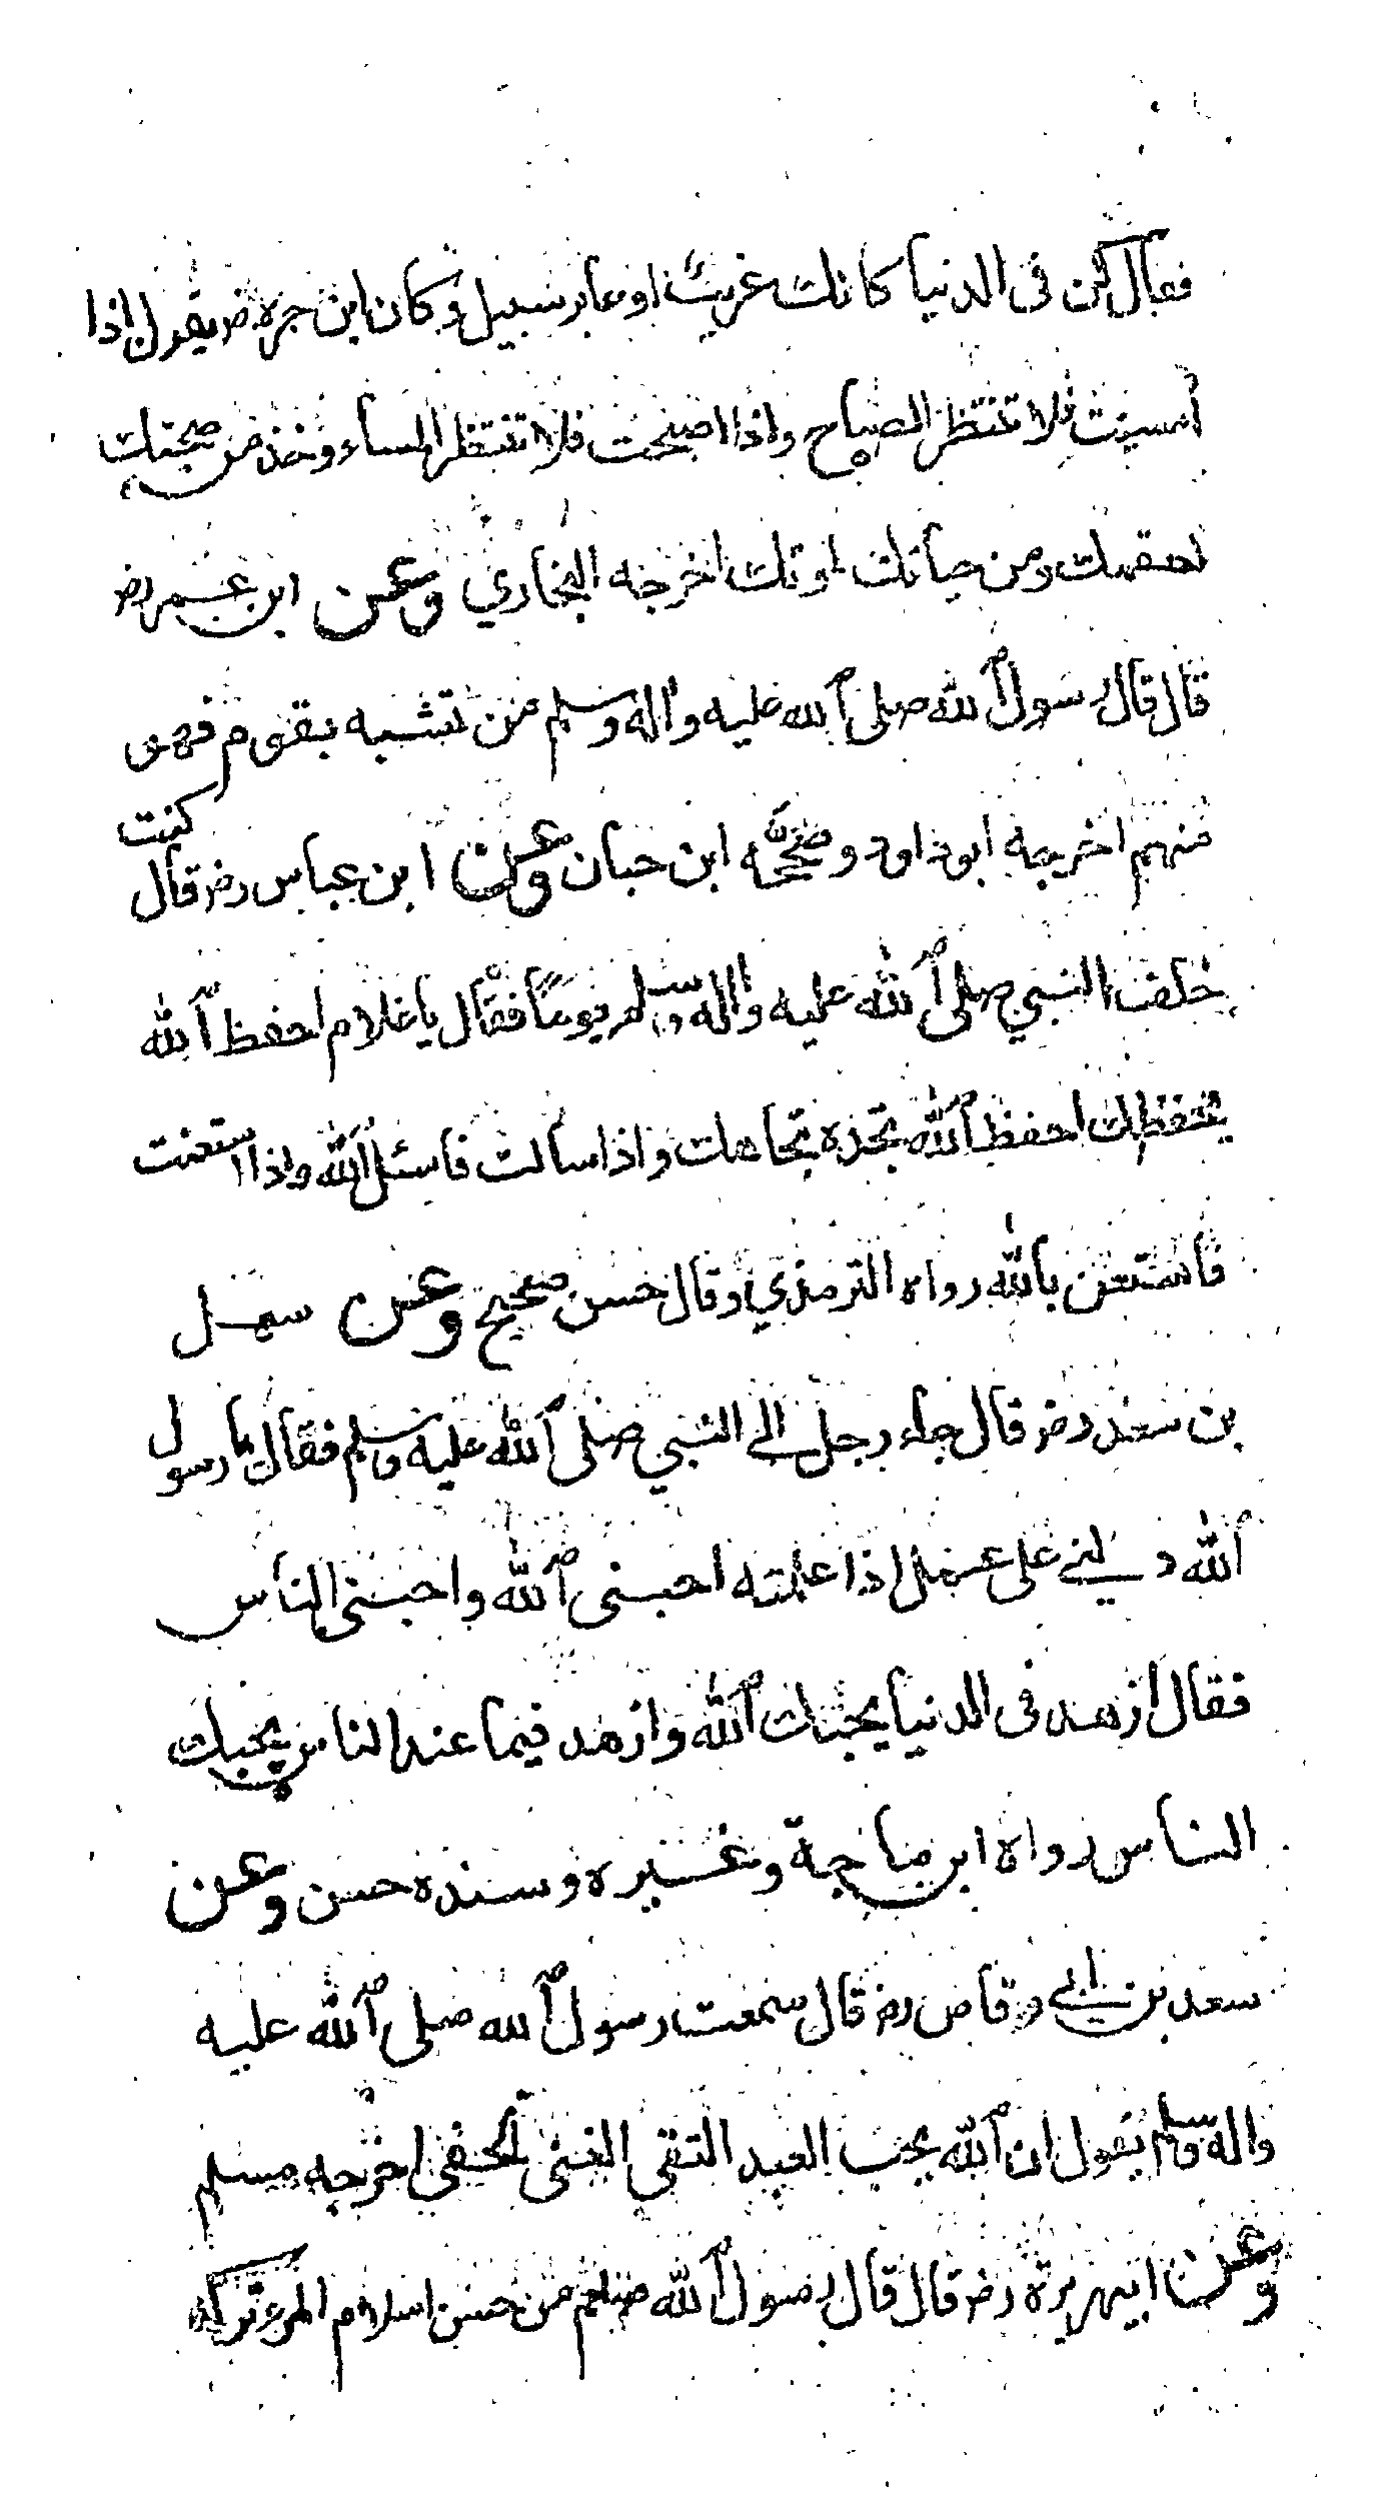 فقال كن فى الدنيا كانك غريب او عابر سبيل وكان ابن جره رض يقول اذا
امسيت فلا تنتظر الصباح واذا اصبحت فلا تنتظر المساء وخذ من صحتك
لسقمك ومن حياتك لموتك اخرجه البخاري وعن ابن عمر رض
قال قال رسول الله صلى الله عليه واله وسلم من تشبه بقوم فهو
منهم اخرجه ابو داود وصححه ابن حبان وعن ابن عباس رض قال كنت
خلف النبي صلى الله عليه واله وسلم يوما فقال يا غلام احفظ الله
يحفظك احفظ الله تجده تجاهك واذا سالت فاسئل الله واذا استعنت
فاستعن بالله رواه الترمذي وقال حسن صحيح وعن سهل
بن سعد رض قال جاء رجل الى النبي صلى الله عليه وسلم فقال يا رسول
الله دلني على عمل اذا علمته احبنى الله واحبنى الناس
فقال ازهد فى الدنيا يحبك الله وازهد فيما عند الناس يحبك
الناس رواه ابن ماجة وغيره وسنده حسن وعن
سعد بن ابي وقاص رض قال سمعت رسول الله صلى الله عليه
واله وسلم يقول ان الله يحب العبد التقي الغنى الخفي اخرجه مسلم
وعن ابيهريرة رض قال قال رسول الله صلعم من حسن اسلام المرء تركه